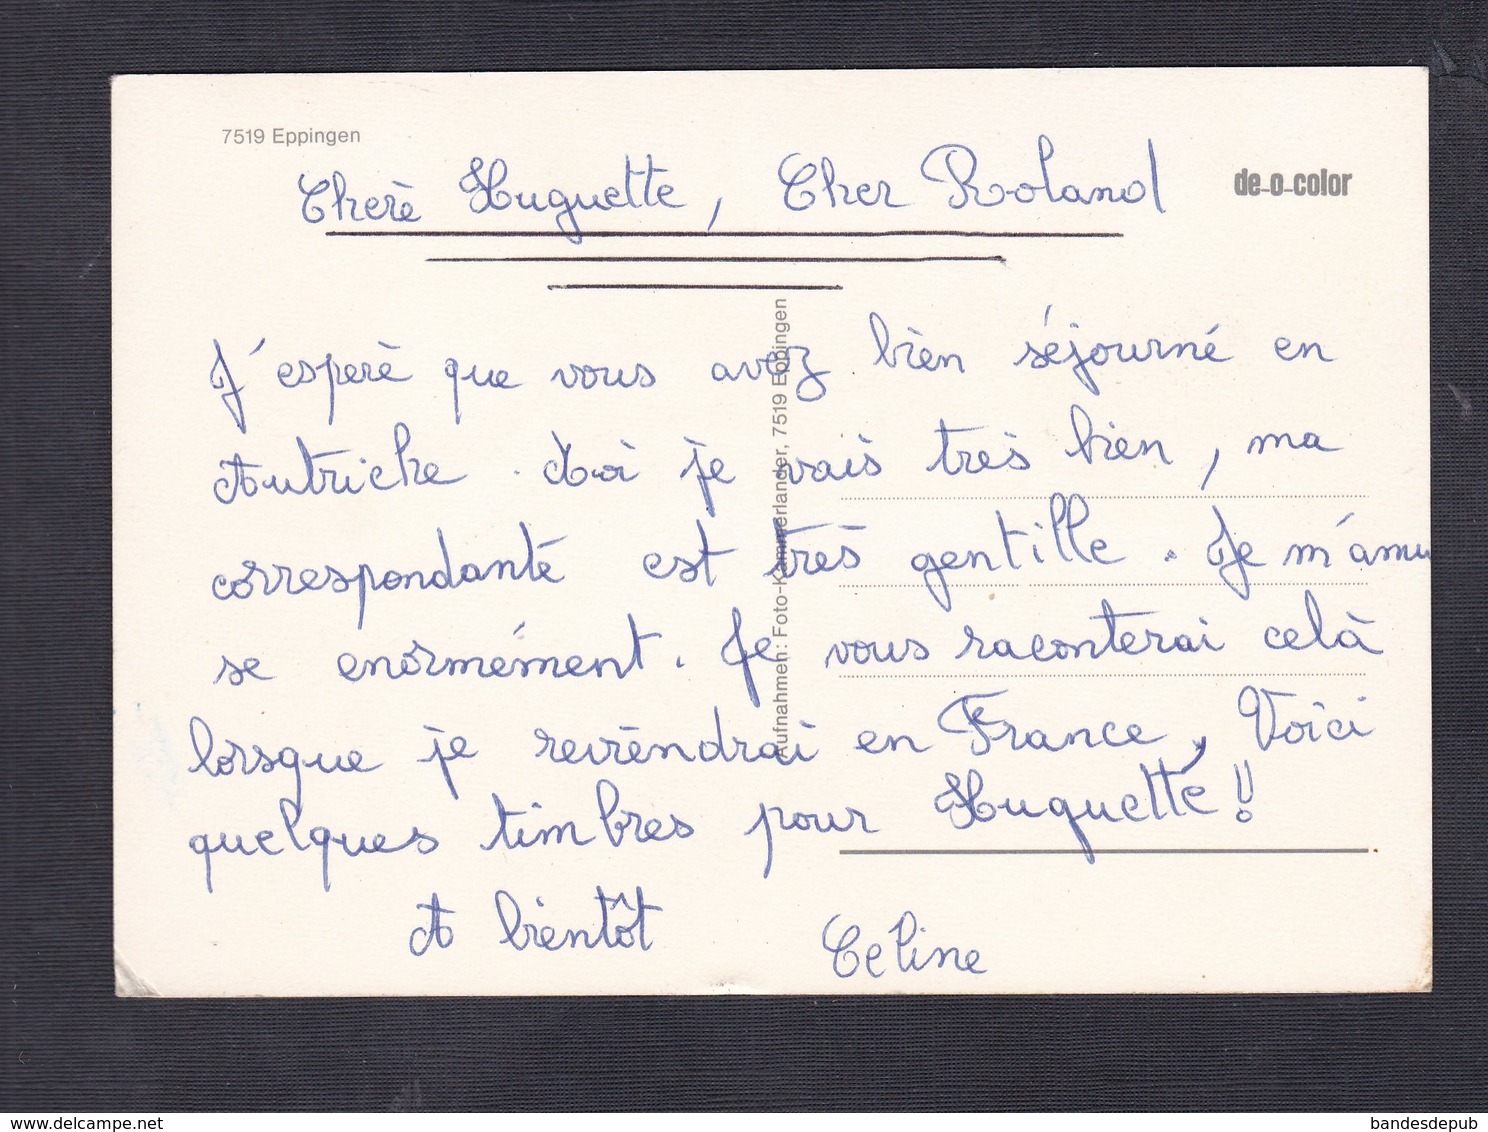 7519 Eppingen
de-o-color
Cherè Huguette, Cher Roland
J'esperè que vous avez bièn séjourné en
Autriche. Moi je vais très bien, ma
correspondanté est très gentille. Je m'amu
se enormément. Je vous raconterai celà
lorsque je reviendrai en France, Voici
quelques timbres pour Huguette!!
A bientôt Celine
Aufnahmen: Foto-Kammerlander, 7519 Eppingen
delcampe.net
bandesdepub